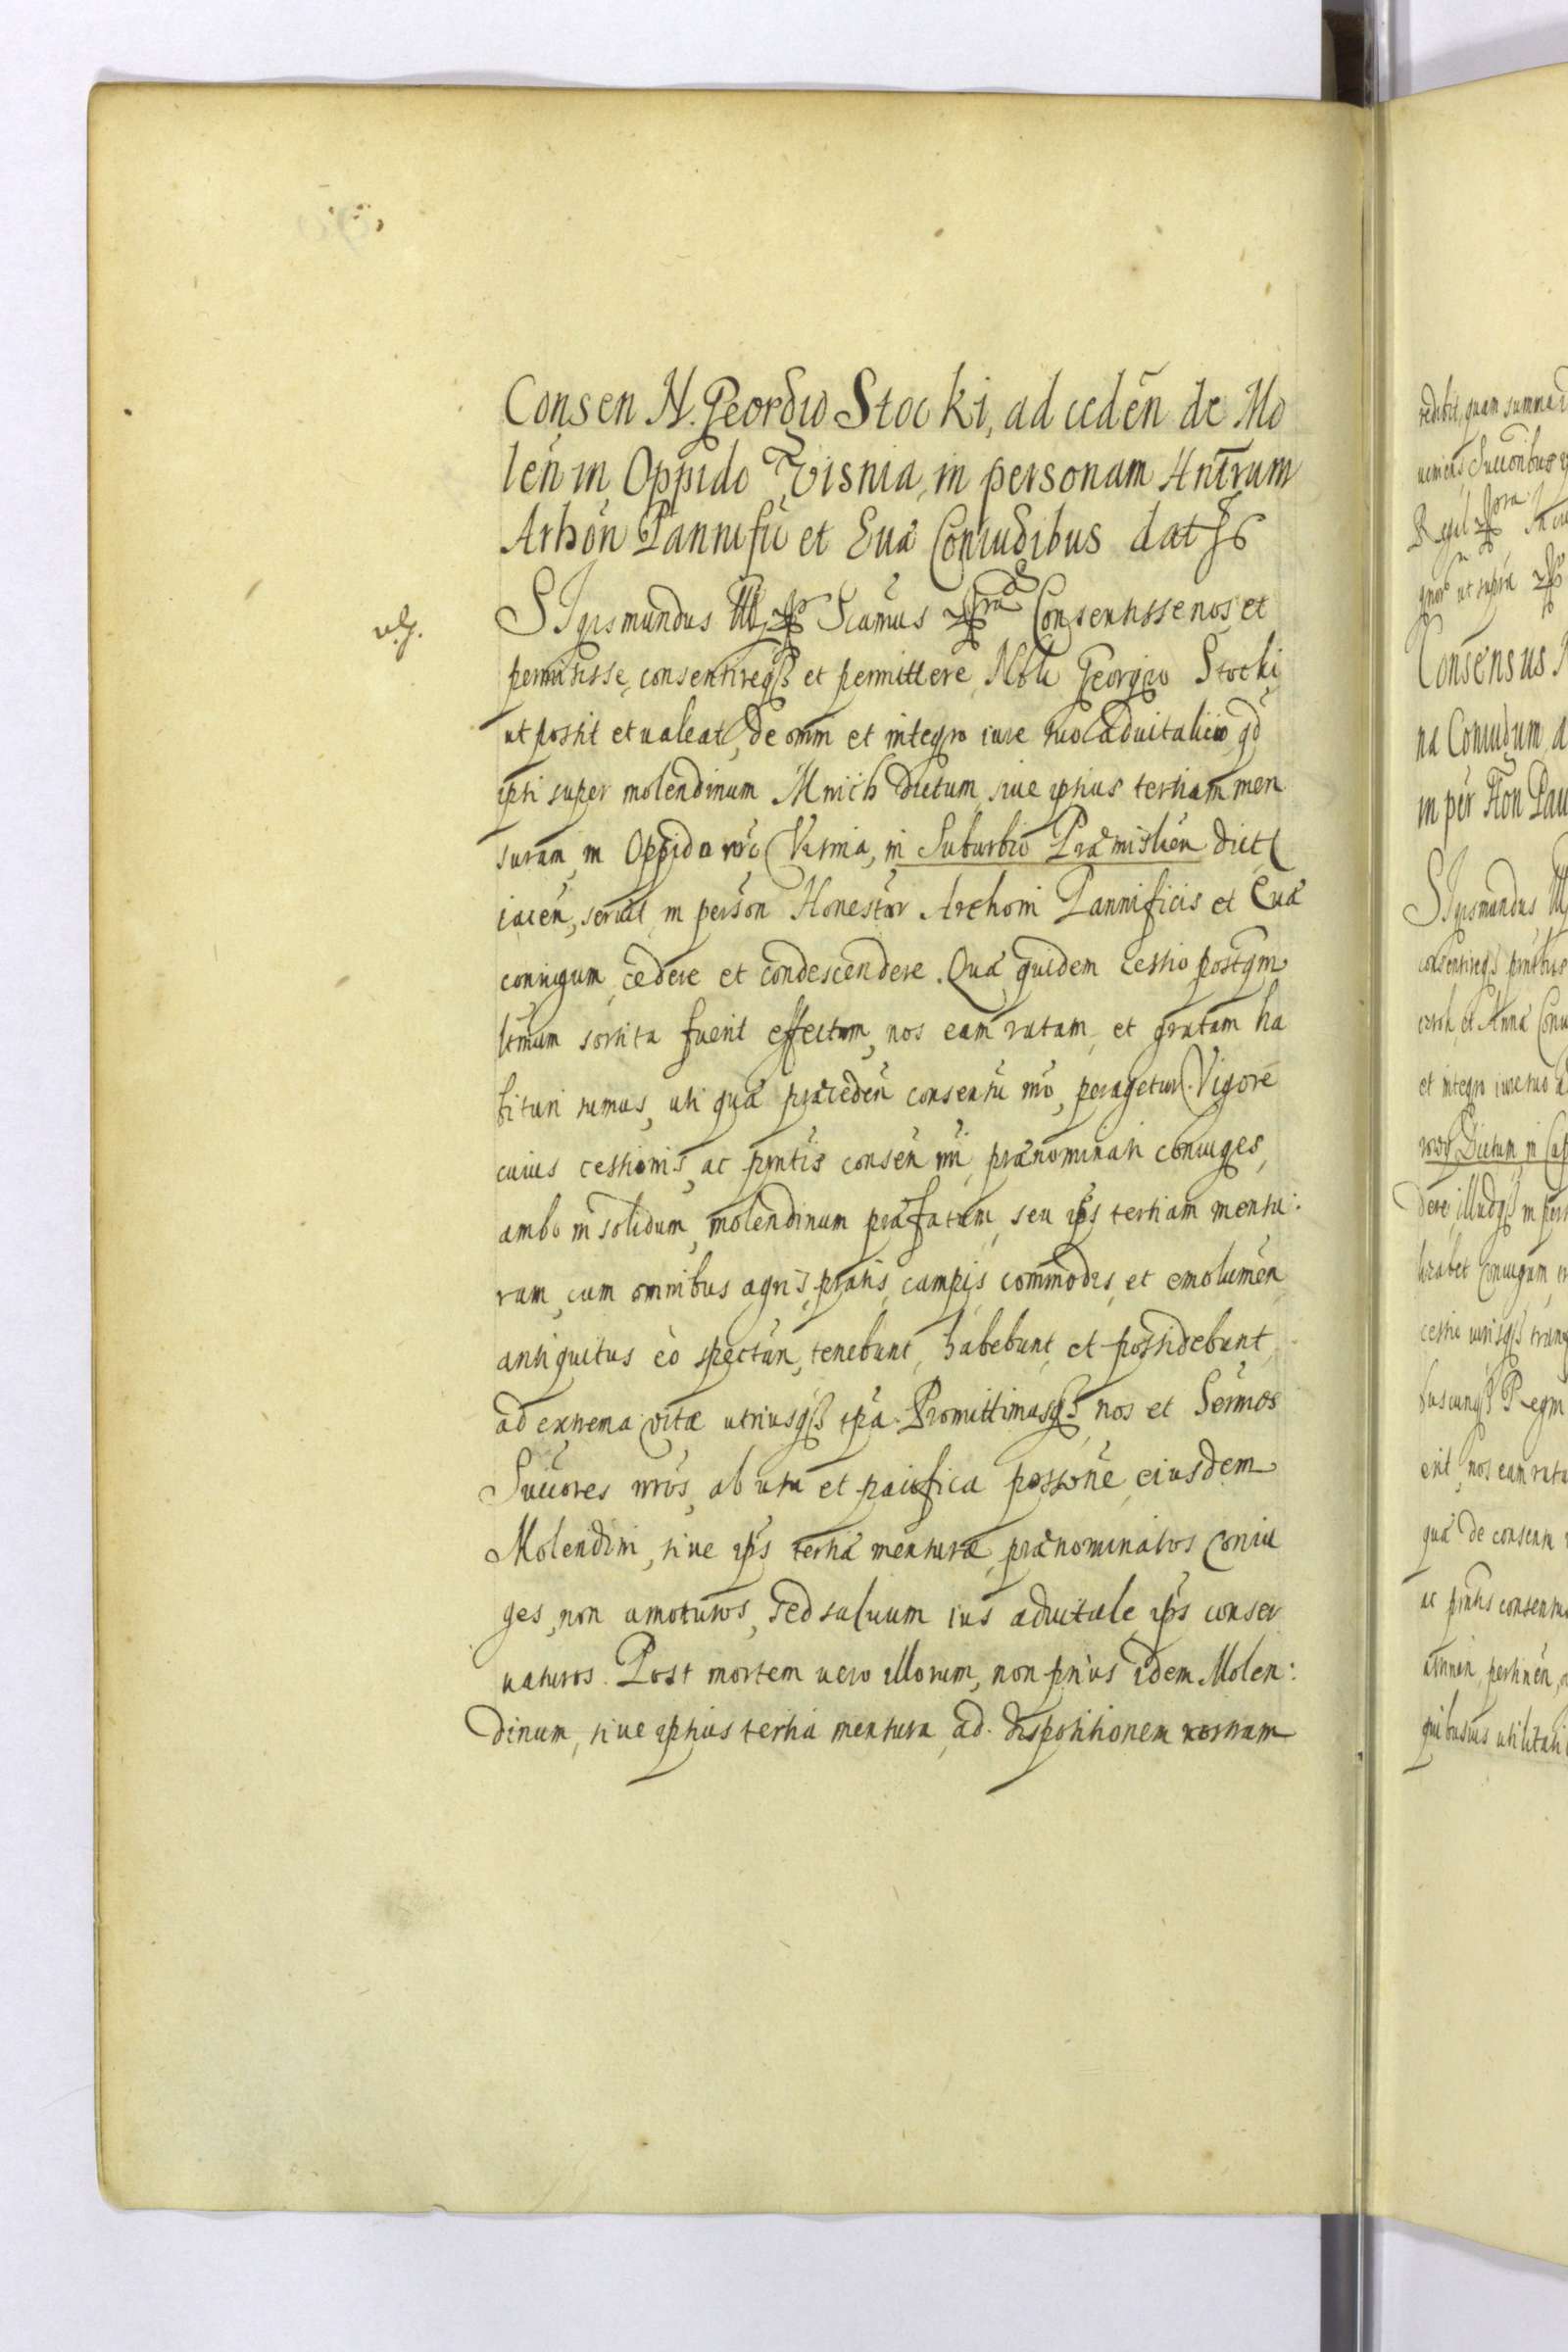 Consen N. Georgio Stocki, ad ceden de Mo
len in Oppido Visnia, in personam
Arhon Pannifici et Euæ Coniugibus dat
Sigismundus III Scamus Consensisse nos et
permisisse, consentireq et permittere Nobli Georgio Stocki
ut possit et ualeat, de omni et integro iure suo aduitalicio qd
ipsi super molendinum Mnich dictum siue ipsius tertiam men
suram in Oppido nro Visnia, in Suburbio Præmislien dict
iacen, seruit, in person Honestor Archoni Pannificis et Euæ
coniugum cedere et condescendere. Quæ quidem cessio postqm
suum sortita fuerit effectum, nos eam ratam, et gratam ha
bituri sumus, uti quæ præceden consensu nro, peragetur. Vigore
cuius cessionis, ac pntis consen nri, prænominati coniuges,
ambo in solidum, molendinum præfatum, seu ips tertiam mensu:
ram, cum omnibus agris, pratis, campis, commodis, et emolumen
antiquitus eò spectan, tenebunt, habebunt, et possidebunt,
ad extrema vitæ utriusq tpa. Promittimusq nos et Sermos
Succores nros, ab usu et pacifica possone eiusdem
Molendini, siue ips tertiæ mensuræ, prænominatos coniu
ges, non amoturos, sed saluum ius aduitale ips conser
uaturos. Post mortem uero illorum, non prius idem Molen:
dinum, siue ipsius tertia mensura, ad dispositionem nostram
redibit, quam summa
Succoribus
ut supra
Consensus
na Coniugum a
in per Hon Pau
Sigismundus III
consentireq pntibus
et Anna Coniu
et integro iure suo a
Dictum in
dere, illudq in pers
Coniugum
cessio
Regni
erit, nos eam rata
quæ de consensu
ac pntis consensus
pertinen
quibusuis utilitati